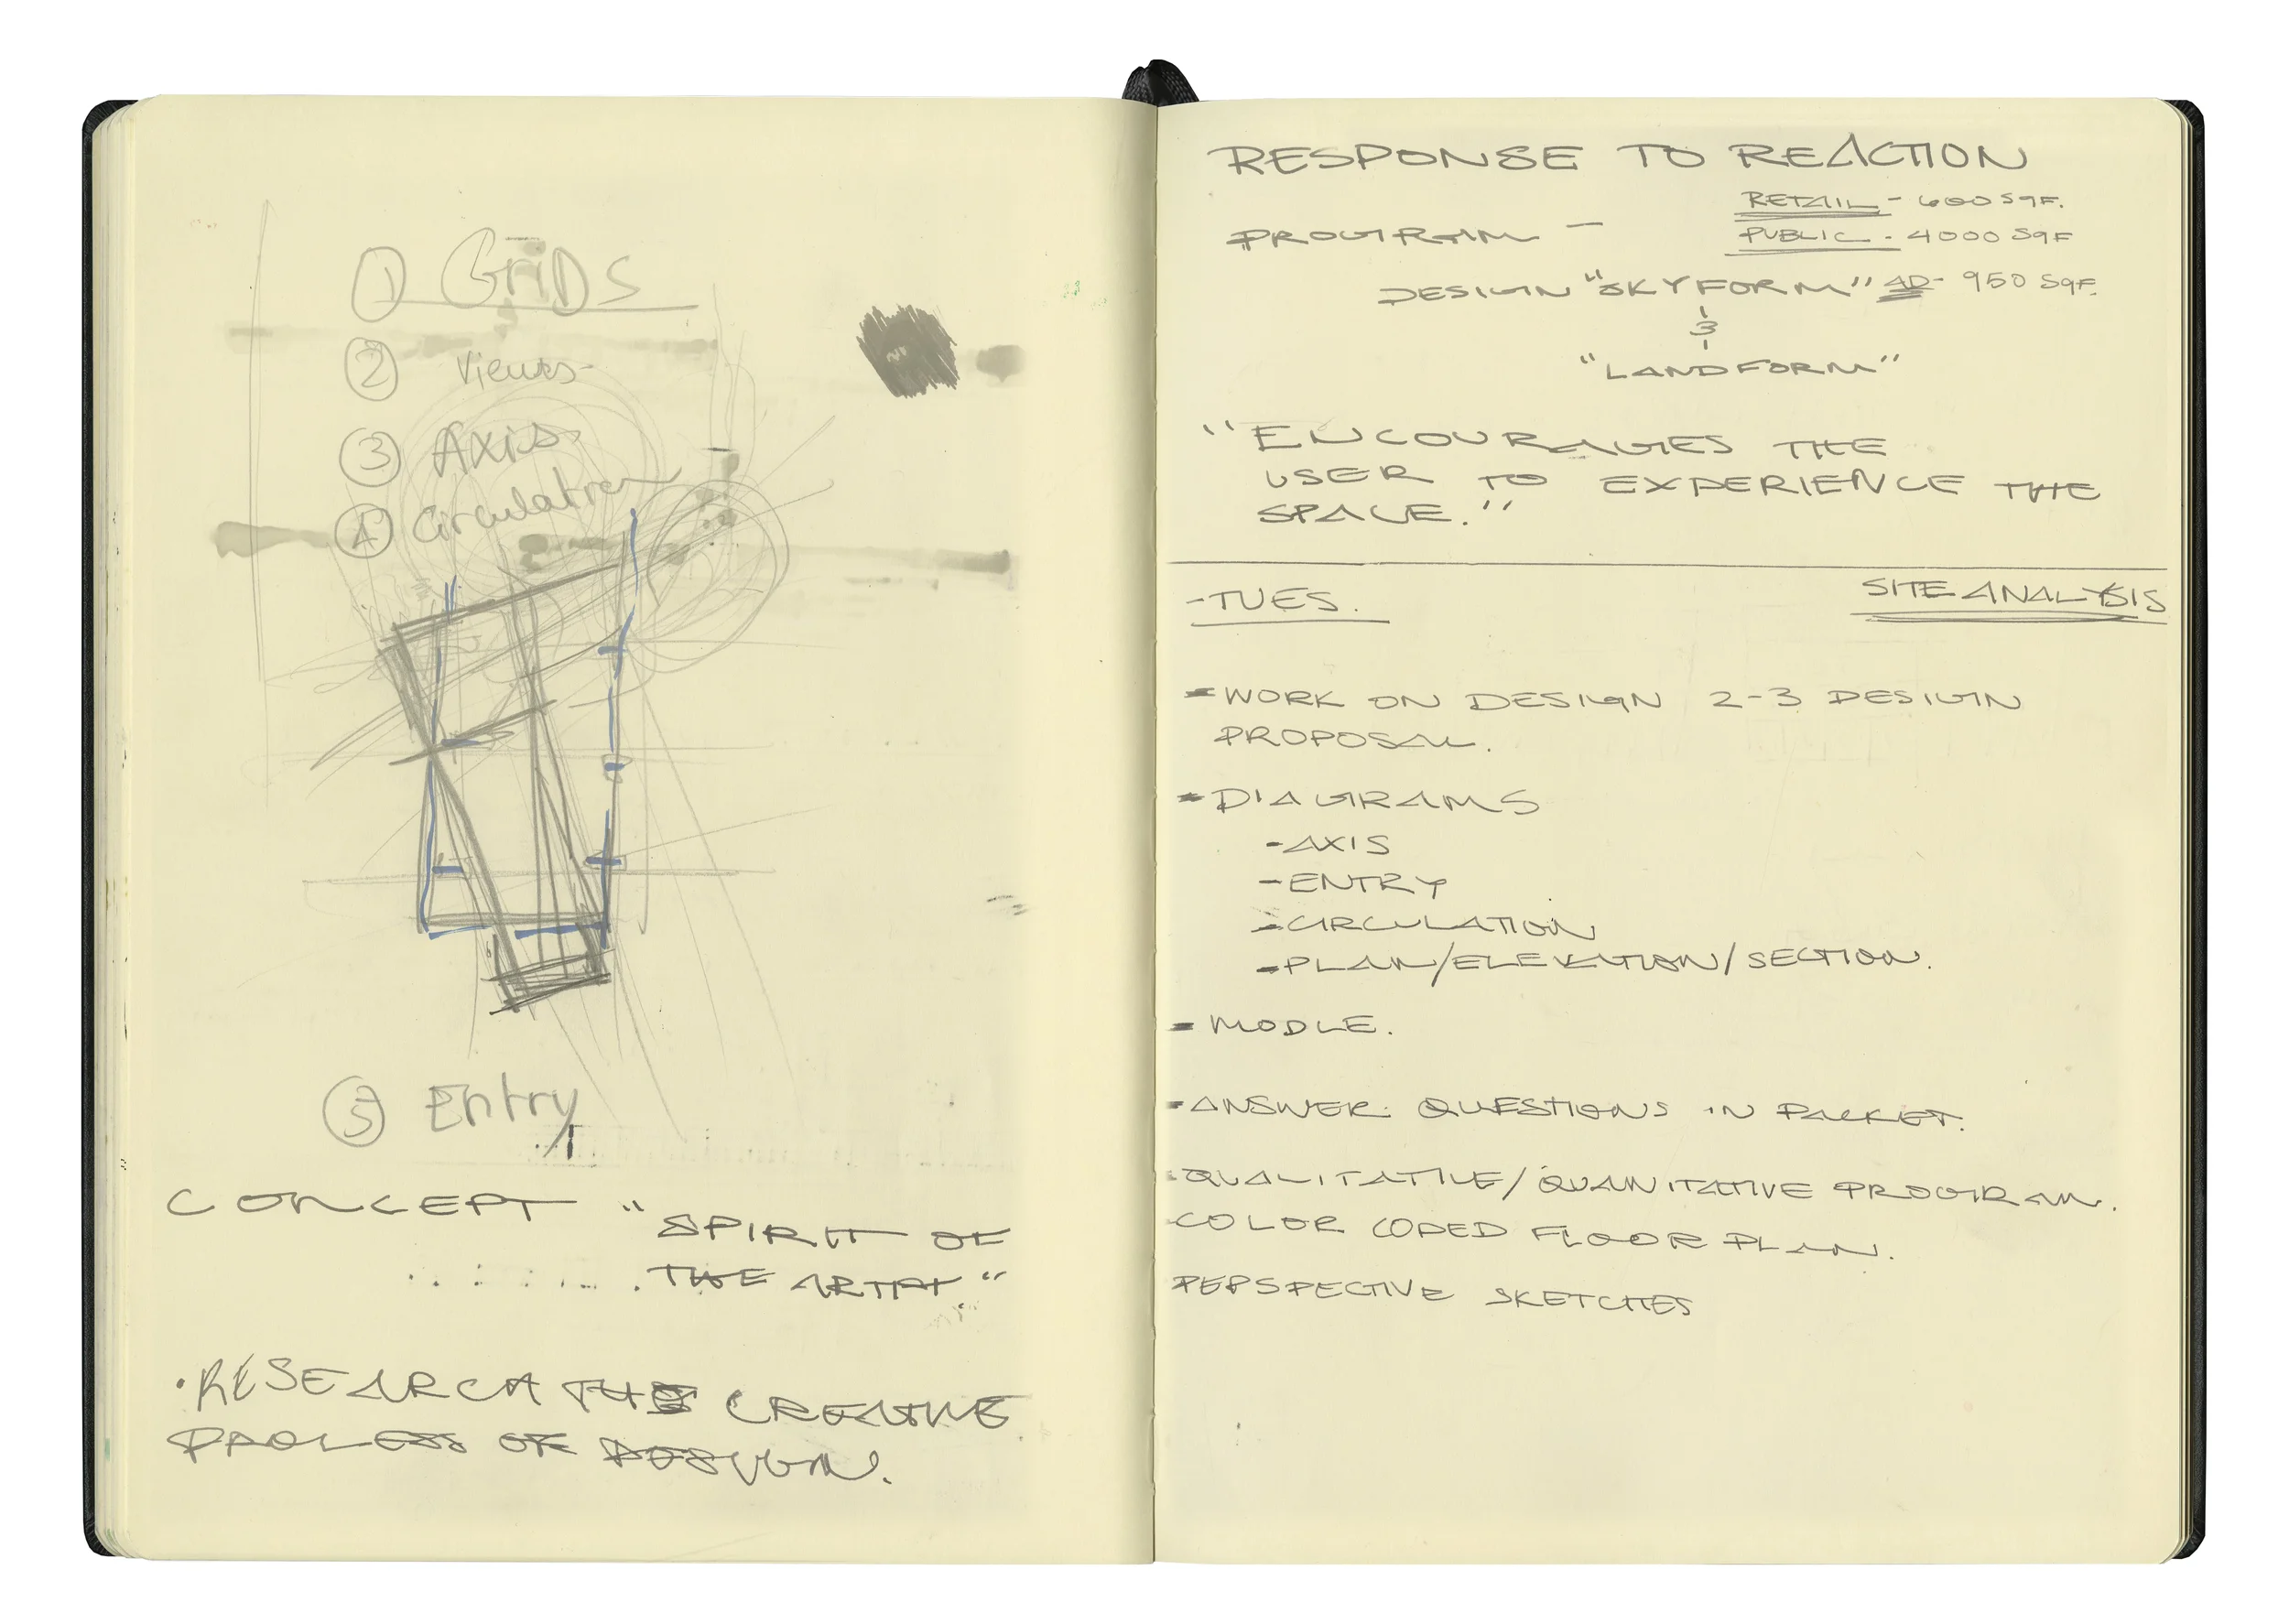 ① GriDs
② Views
③ Axis
④ Circulation
⑤ Entry
CONCEPT "SPIRIT OF
THE ARTIST"
· RESEARCH THE CREATIVE
PROCESS OF DESIGN.
RESPONSE TO REACTION
RETAIL - 600 SQF.
PROGRAM -
PUBLIC - 4000 SQF
DESIGN "SKYFORM" AD - 950 SQF.
&
"LANDFORM"
"ENCOURAGES THE
USER TO EXPERIENCE THE
SPACE."
- TUES.
SITE ANALYSIS
- WORK ON DESIGN 2-3 DESIGN
PROPOSAL.
- DIAGRAMS
- AXIS
- ENTRY
- CIRCULATION
- PLAN/ELEVATION/SECTION.
- MODLE.
- ANSWER QUESTIONS IN PACKET.
- QUALITATIVE/QUANITATIVE PROGRAM.
- COLOR CODED FLOOR PLAN.
PERSPECTIVE SKETCHES